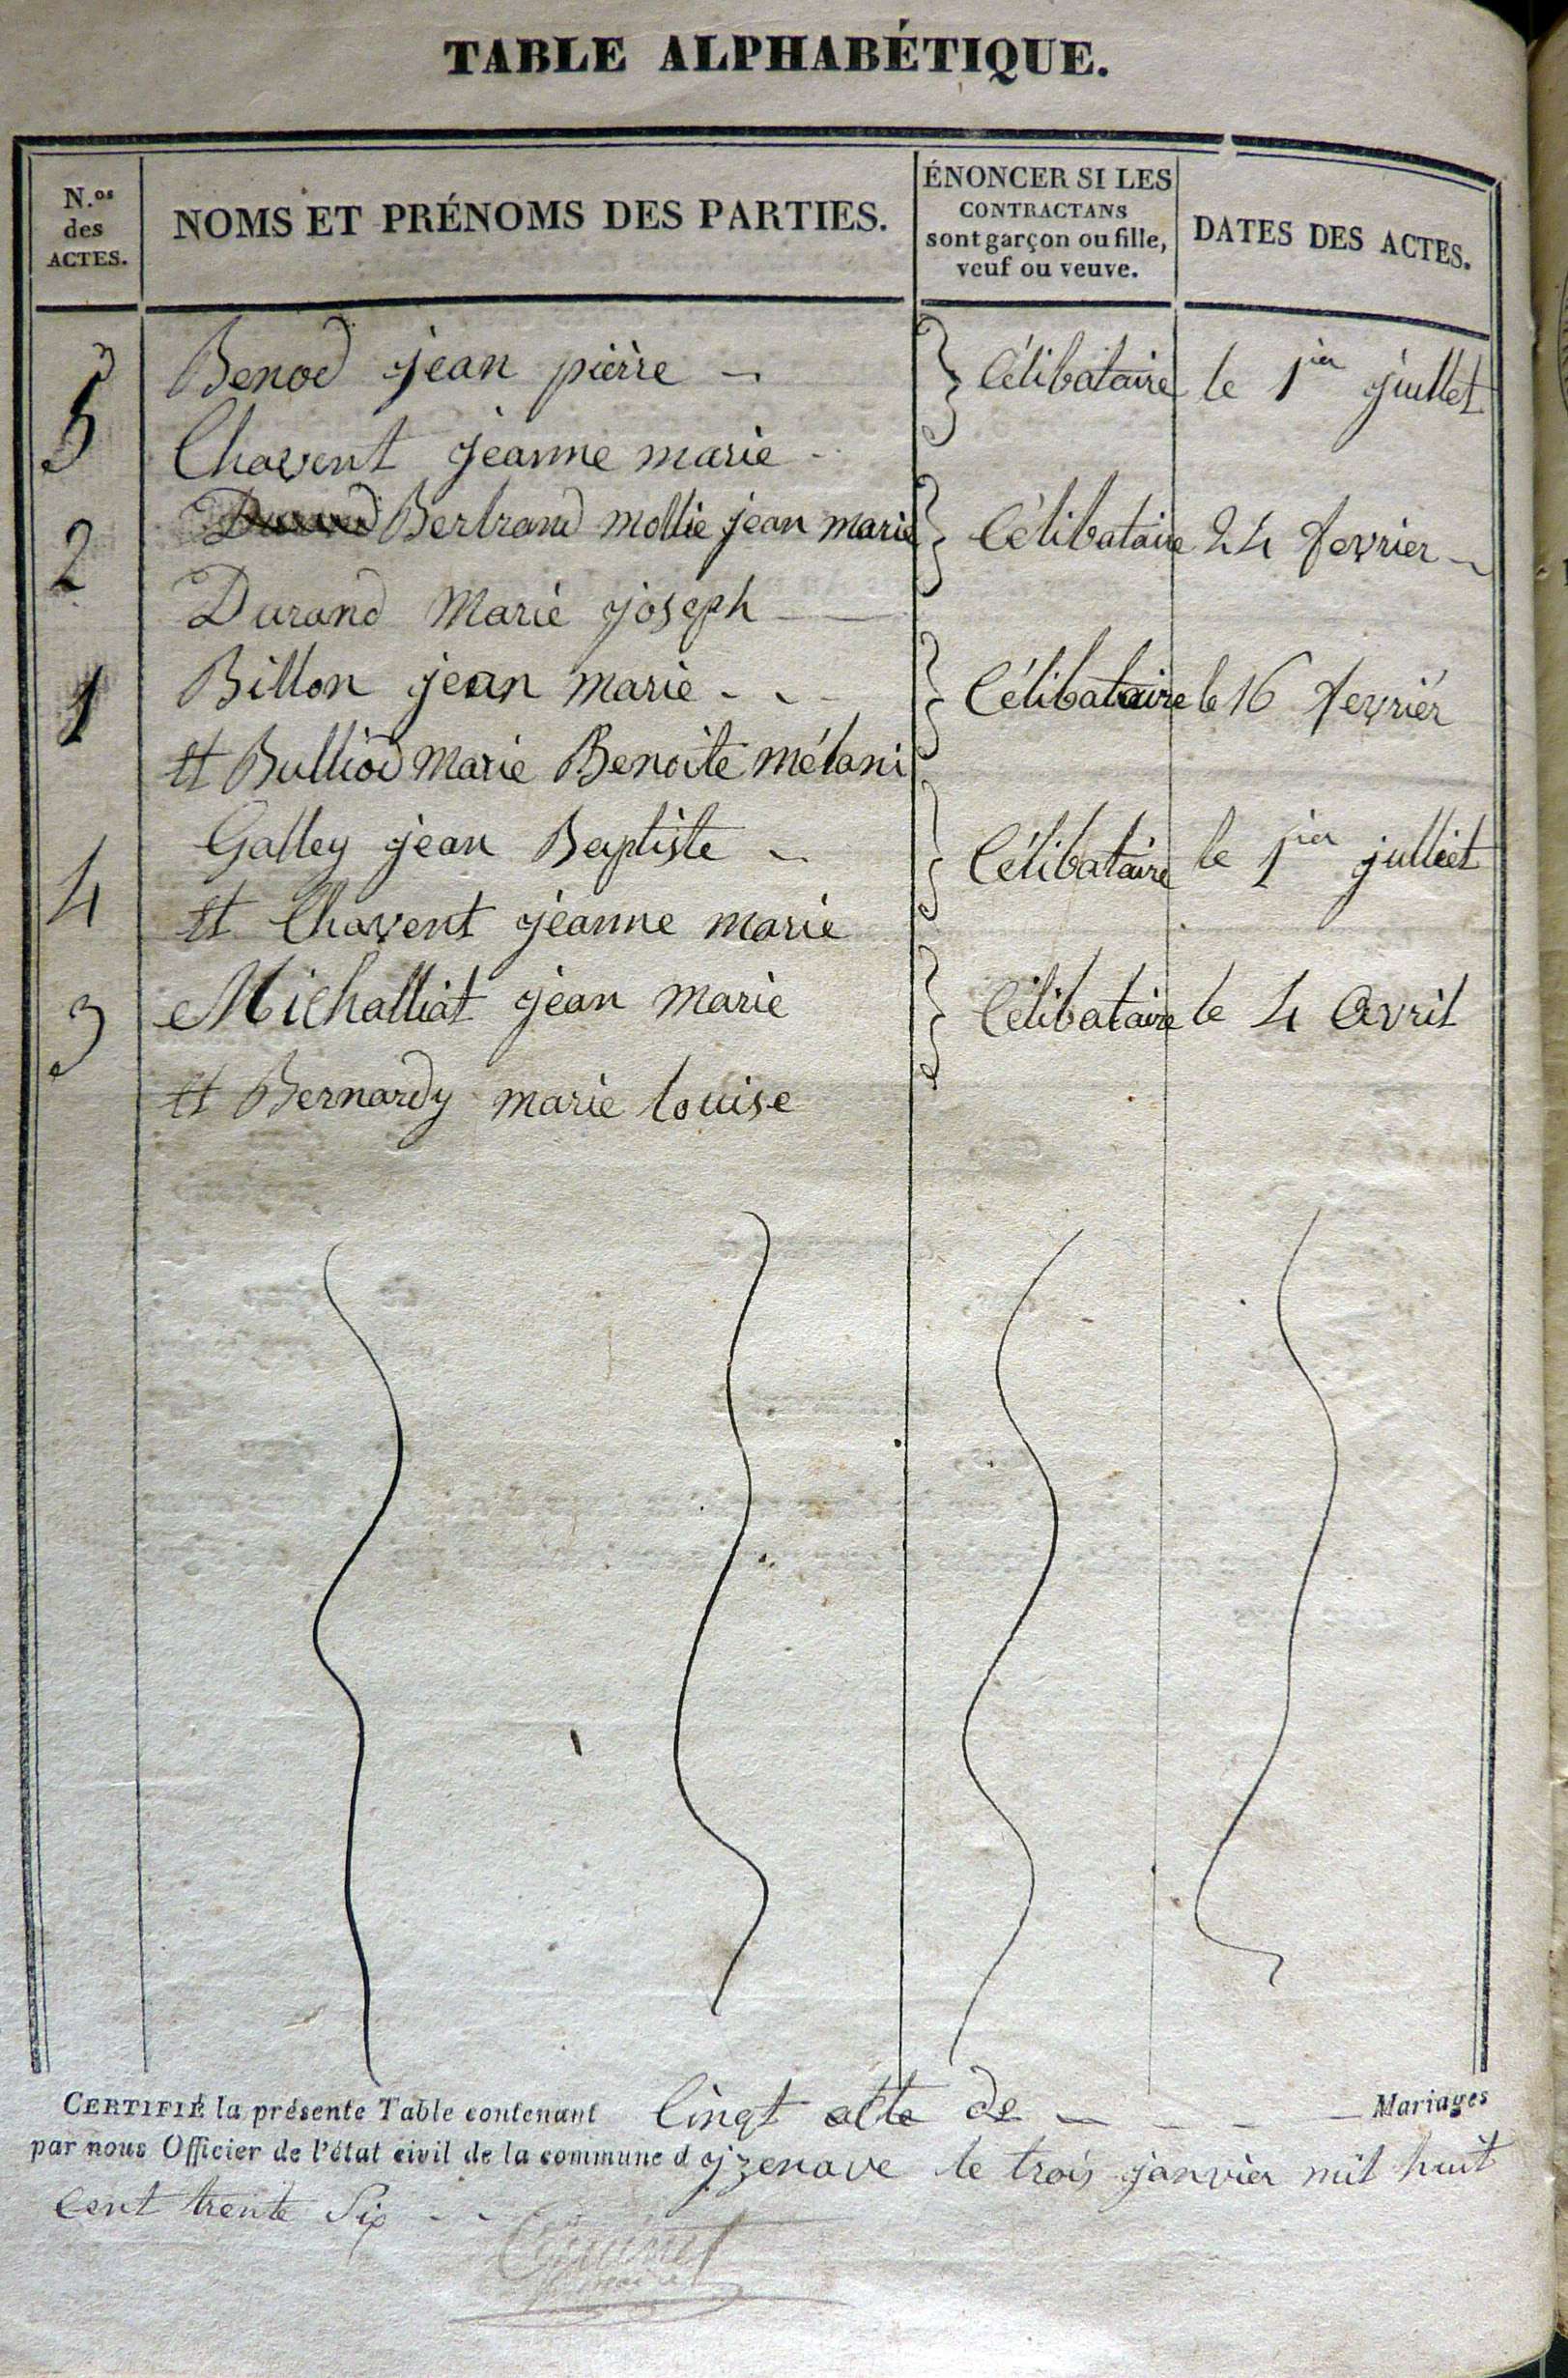 TABLE ALPHABÉTIQUE.
N.os des ACTES.
NOMS ET PRÉNOMS DES PARTIES.
ÉNONCER SI LES
CONTRACTANS
sont garçon ou fille,
veuf ou veuve.
DATES DES ACTES.
5 Benod jean pierre } Célibataire le 1ier juillet
Chavent jeanne marie
2 Bertrand mollie jean marie } Célibataire 24 fevrier
Durand Marie joseph
1 Billon jean marie } Célibataire le 16 fevrier
et Bulliod Marie Benoite mélani
4 Galley jean Baptiste } Célibataire le 1ier julliet
et Chavent jeanne marie
3 Michalliat jean Marie } Célibataire le 4 Avril
et Bernardy marie louise
CERTIFIÉ la présente Table contenant Cinqt acte de Mariages
par nous Officier de l'état civil de la commune d jzenave le trois janvier mil huit
cent trente Six